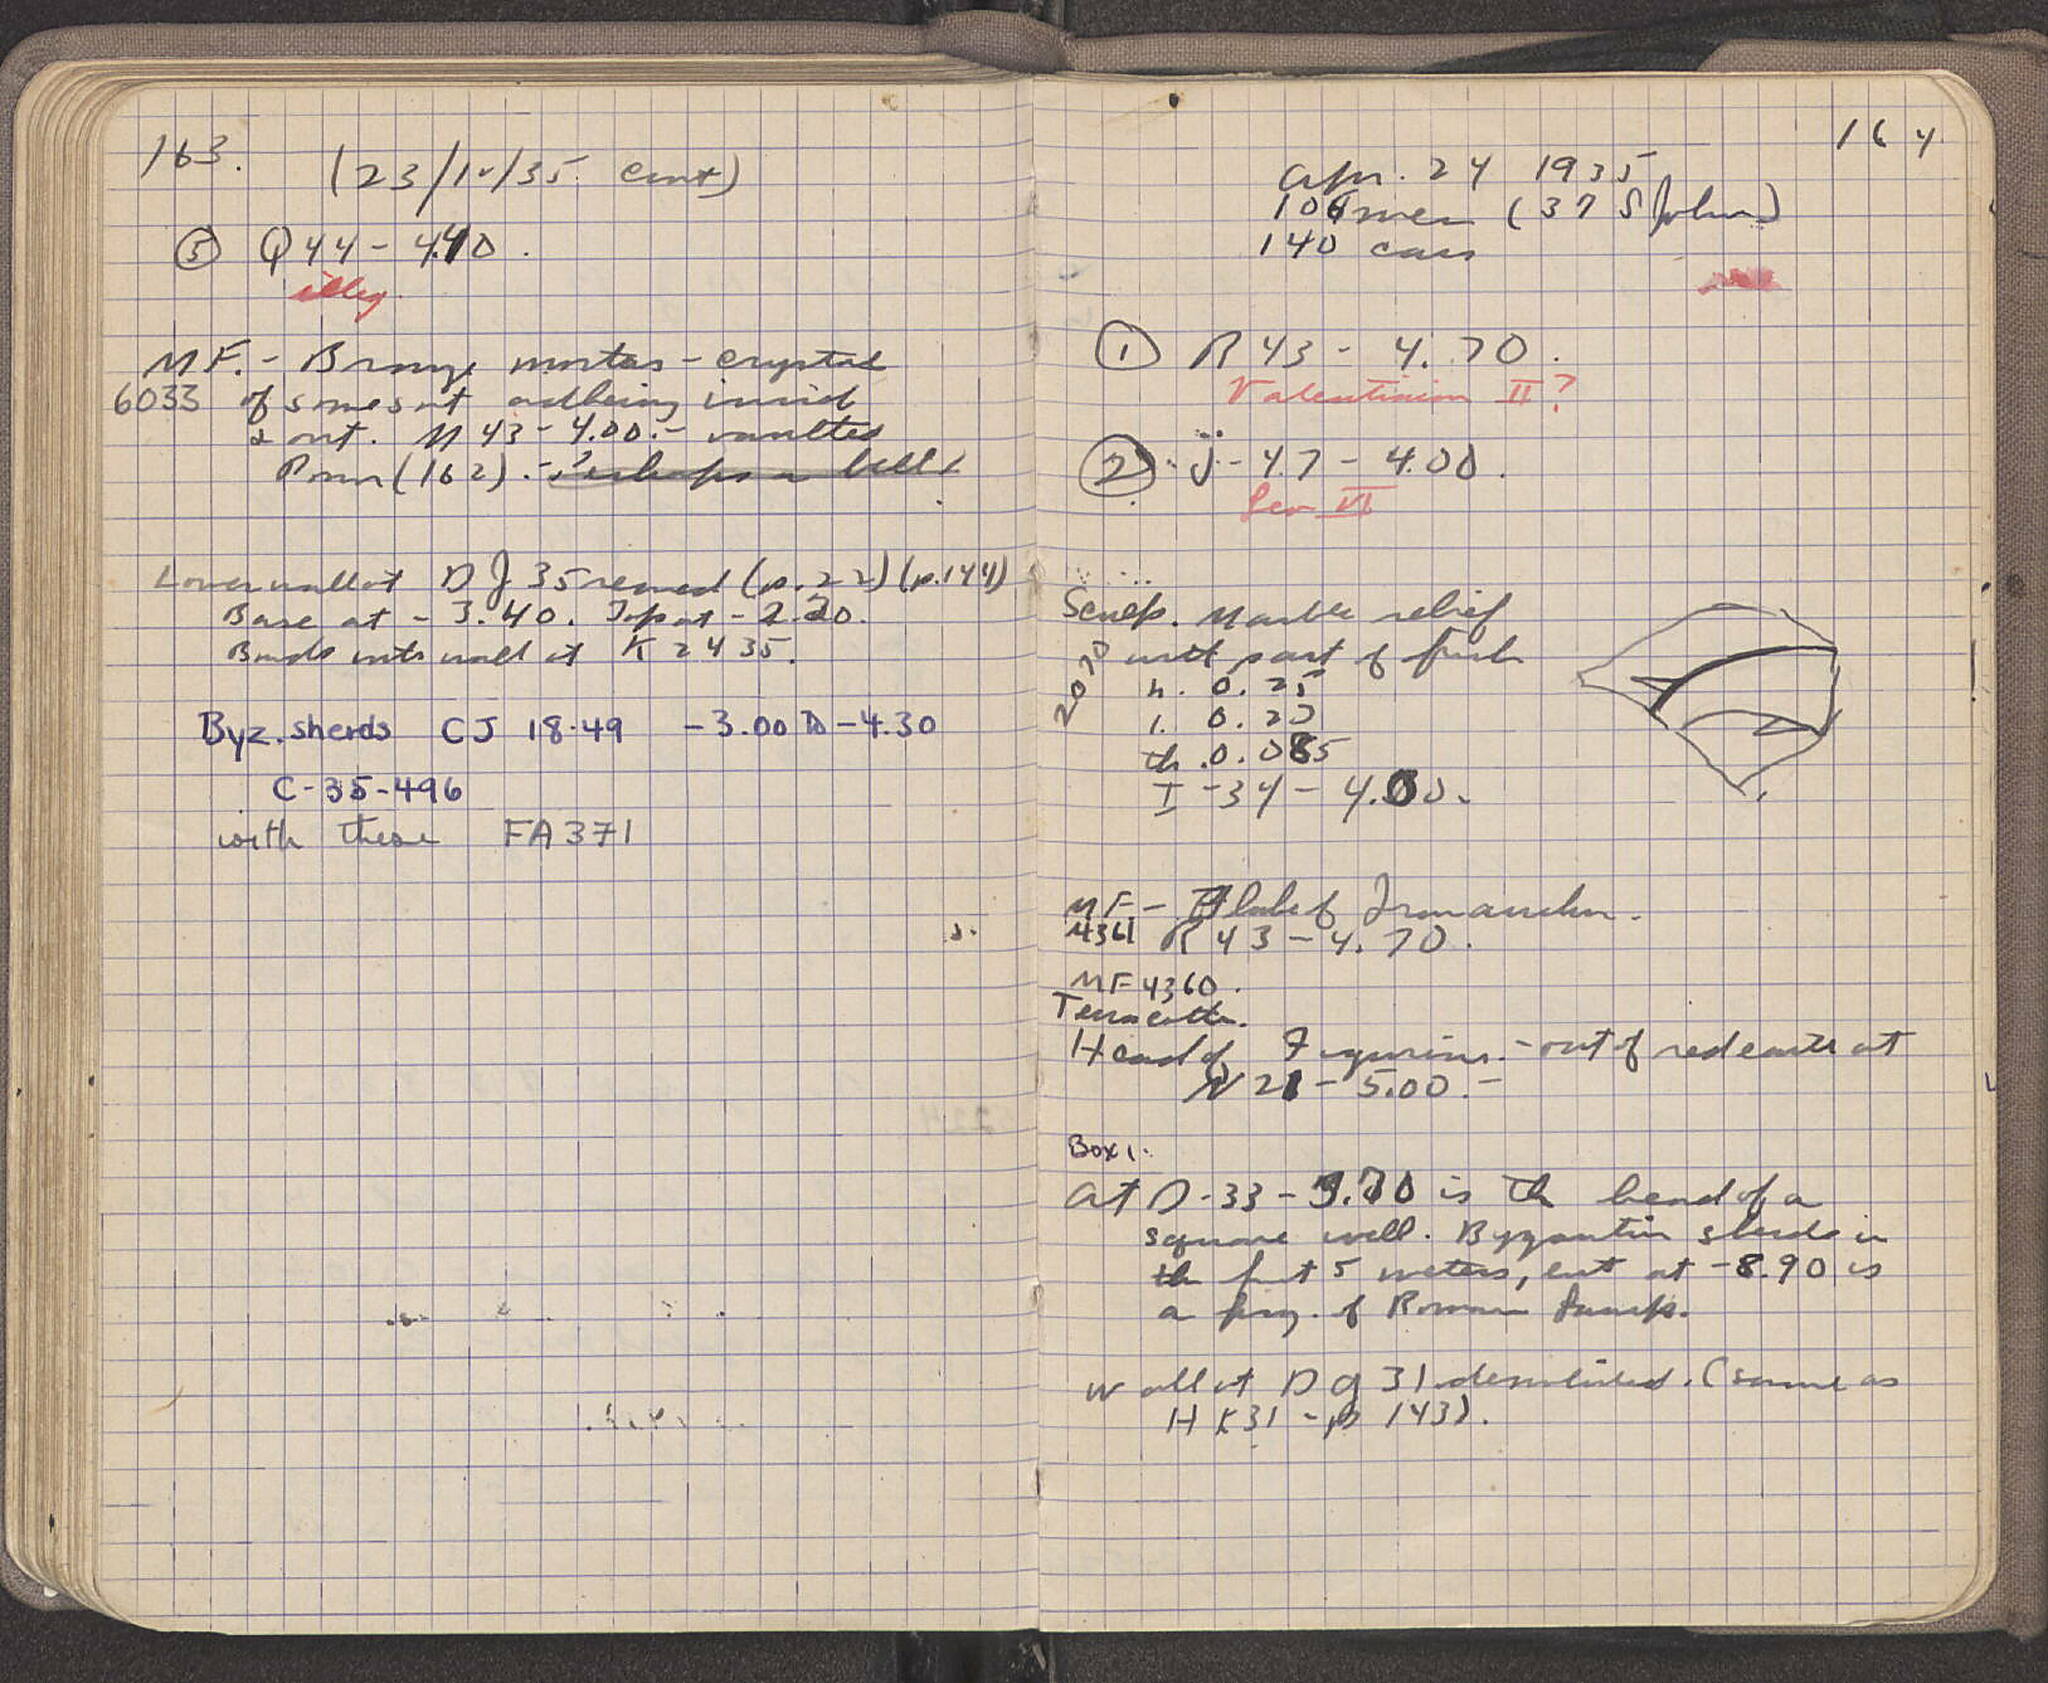 163.
(23/IV/35 cont)
⑤ Q 44 - 4.40.
illeg.
MF. - Bronze mortar - crystal
6033 of some sort adhering inside
& out. N 43 - 4.00. - vaulted
Room (162). - Perhaps a bell?
Lower wall at D J 35 removed (p. 22) (p. 144)
Base at - 3.40. Top at - 2.20.
Bonds into wall at K 24 35.
Byz. sherds CJ 18-49 -3.00 to -4.30
C-35-496
with these FA 371
164
Apr. 24 1935
106 men (37 S John)
140 cars
① R 43 - 4.70.
Valentinian II?
② J - 47 - 4.00.
Leo VI
Sculp. Marble relief
2070 with part of
h. 0.25
l. 0.
th. 0.085
I - 34 - 4.00.
MF -
4361 R 43 - 4.70.
MF 4360.
Terracotta.
Head of Figurine. - out of red earth at
N 21 - 5.00. -
Box 1.
At D - 33 - 3.70 is the head of a
square well. Byzantine sherds in
the first 5 meters, but at - 8.90 is
a frag. of Roman Lamp.
Wall at D g 31 demolished. (same as
H K 31 - p 143).